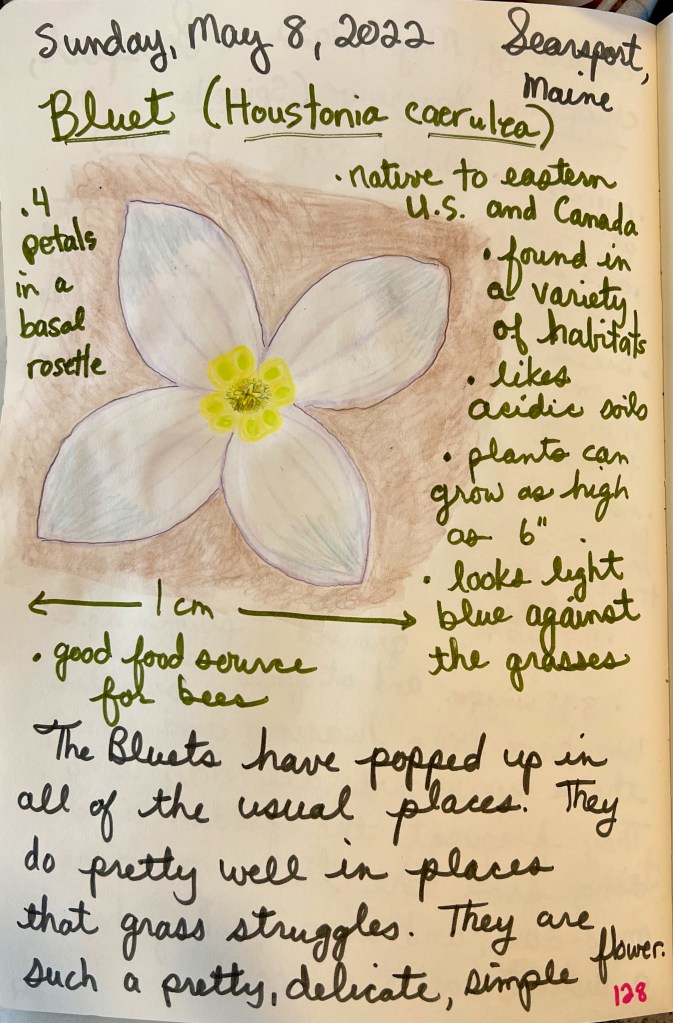 Sunday, May 8, 2022
Searsport,
Maine
Bluet (Houstonia caerulea)
• 4
petals
in a
basal
rosette
• native to eastern
U.S. and Canada
• found in
a variety
of habitats
• likes
acidic soils
• plants can
grow as high
as 6".
• looks light
blue against
the grasses
1 cm
• good food source
for bees
The Bluets have popped up in
all of the usual places. They
do pretty well in places
that grass struggles. They are
such a pretty, delicate, simple flower.
128